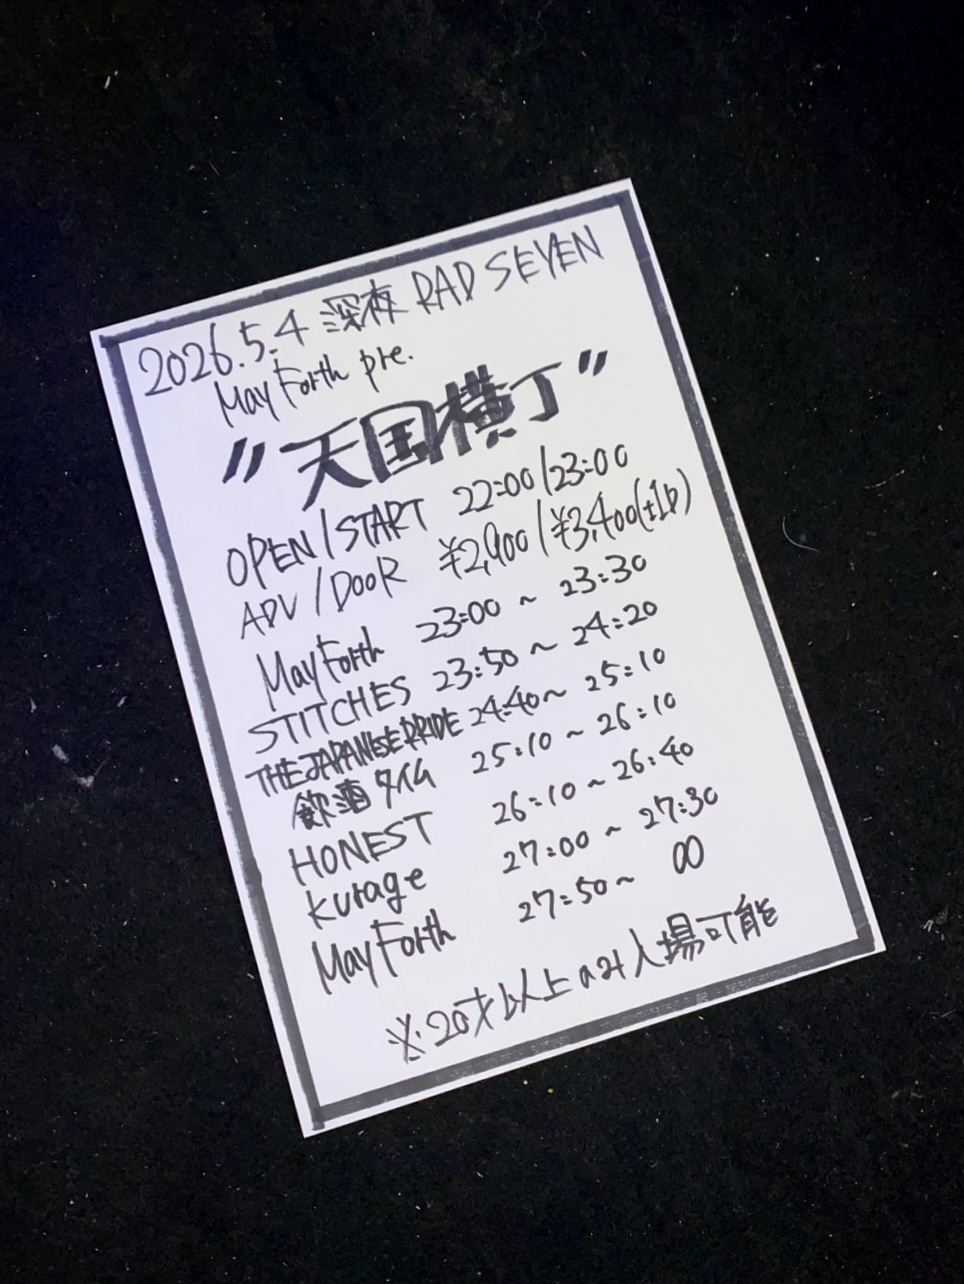 2026.5.4 深夜 RAD SEVEN
May Forth pre.
"天国横丁"
OPEN/START 22:00/23:00
ADV/DOOR ¥2,900/¥3,400(±1D)
May Forth 23:00 ~ 23:30
STITCHES 23:50 ~ 24:20
THE JAPANESE PRIDE 24:40~ 25:10
飲酒タイム 25:10 ~ 26:10
HONEST 26:10 ~ 26:40
kurage 27:00 ~ 27:30
May Forth 27:50~ ∞
※20才以上のみ入場可能